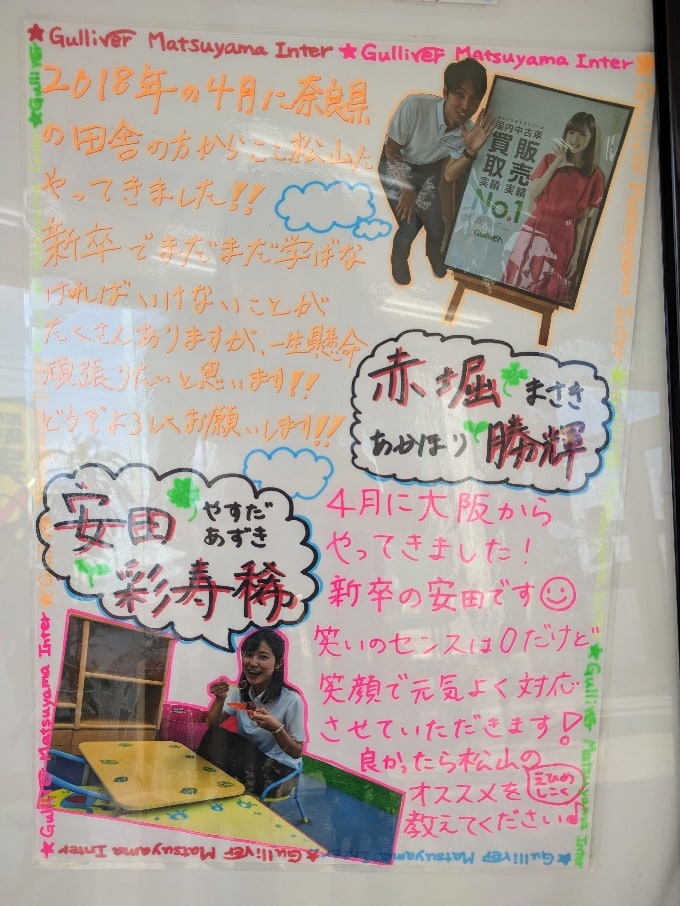 ★Gulliver Matsuyama Inter ★Gulliver Matsuyama Inter
2018年の4月に奈良県
の田舎の方からここ松山に
やってきました!!
新卒でまだまだ学ばな
ければいけないことが
たくさんありますが、一生懸命
頑張りたいと思います!!
どうぞよろしくお願いします!!
国内中古車
買取 販売
実績 実績
No.1
Gulliver
赤堀 まさき
あかほり 勝輝
安田 やすだ
あずき
彩寿稀
4月に大阪から
やってきました!
新卒の安田です☺
笑いのセンスは0だけど
笑顔で元気よく対応
させていただきます!
良かったら松山の
オススメを えひめ
しこく
教えてください♪
★Gulliver Matsuyama Inter
★Gulliver Matsuyama Inter
★Gulliver Matsuyama Inter
★Gulliver Matsuyama Inter
★Gulliver Matsuyama Inter
★Gulliver Matsuyama Inter